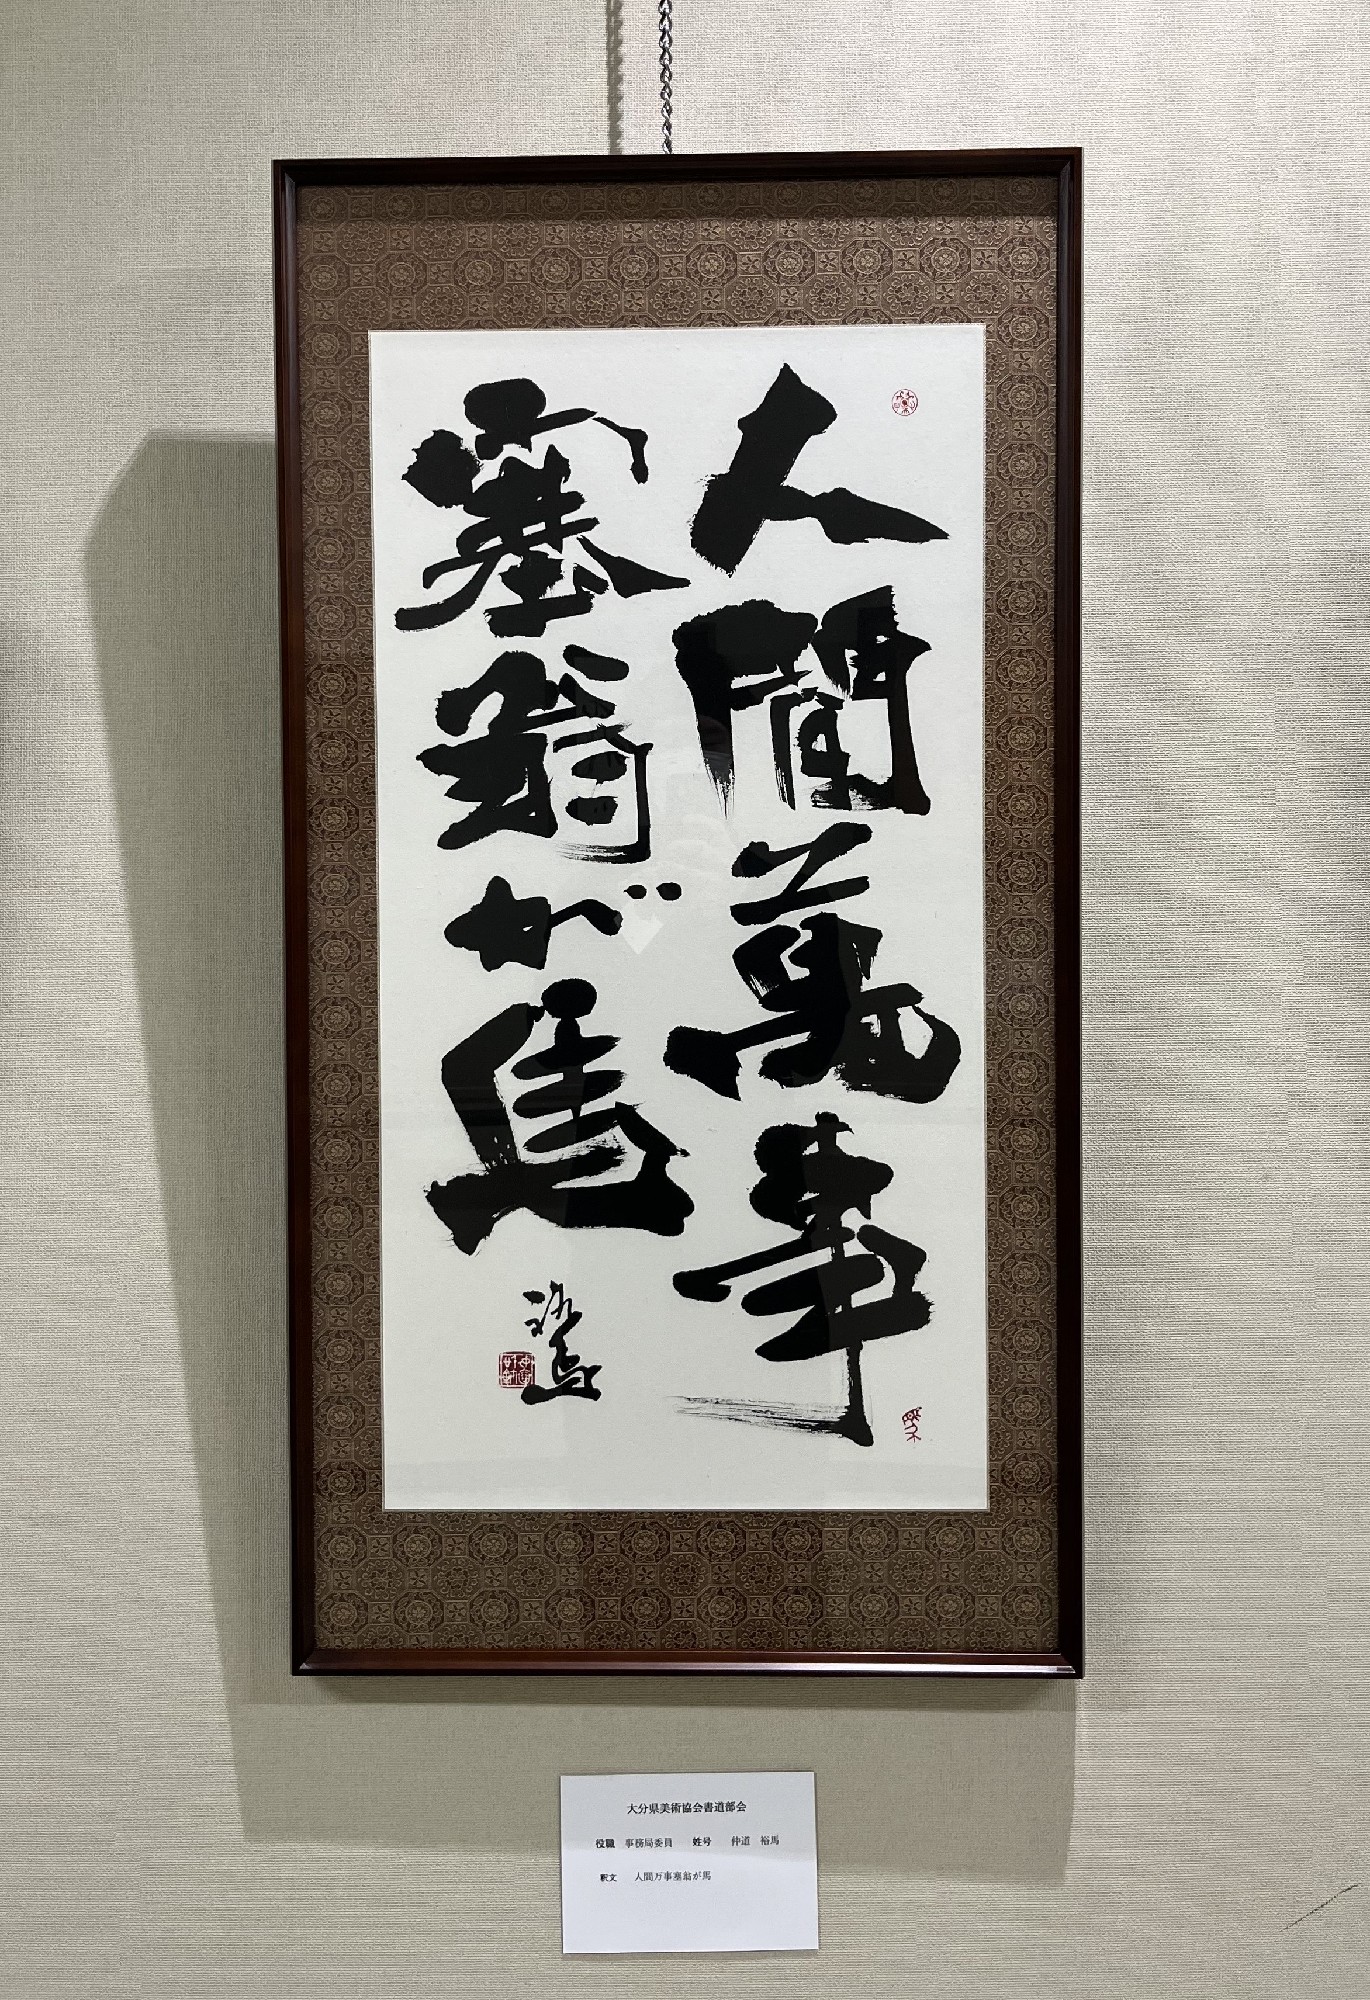 人間萬事
塞翁が馬
裕馬
大分県美術協会書道部会
役職　事務局委員　姓号　仲道　裕馬
釈文　人間万事塞翁が馬